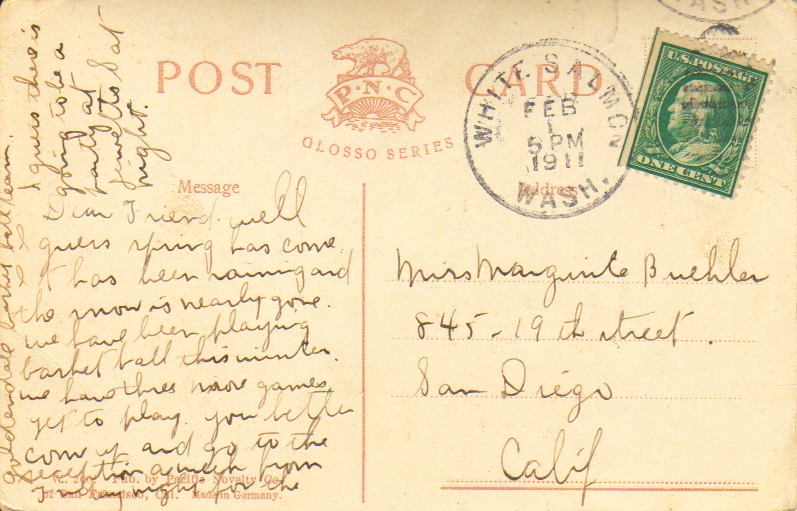 POST CARD
P·N·C
GLOSSO SERIES
WHITE SALMON
FEB
1
5 PM
1911
WASH.
WASH
U.S. POSTAGE
ONE CENT
Message
Address
Dear Friend. well
I guess spring has come.
It has been raining and
the snow is nearly gone.
we have been playing
basket ball this winter.
we have three more games
yet to play. you better
come up and go to the
reception a week from
Friday night for the
Goldendale basket ball team.
I guess there is
going to be a
party at
Jewetts Sat
night.
Miss Marguirite Buehler
845-19th street.
San Diego
Calif
Pub. by Pacific Novelty Co.
of San Francisco, Cal. Made in Germany.